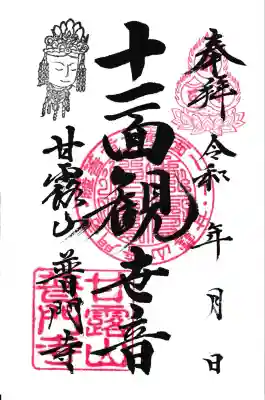 奉拝
令和　年　月　日
十一面観世音
甘露山　普門寺
甘露山
普門寺